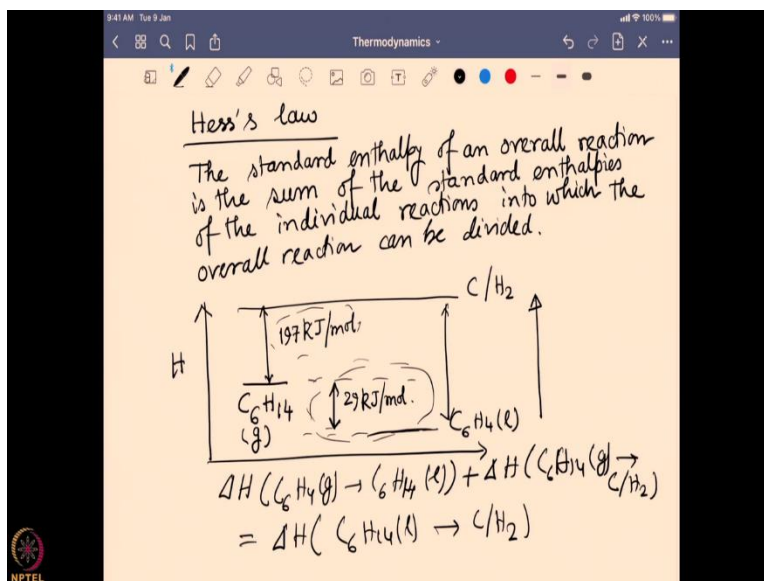 9:41 AM Tue 9 Jan
100%
Thermodynamics
Hess's law
The standard enthalpy of an overall reaction
is the sum of the standard enthalpies
of the individual reactions into which the
overall reaction can be divided.
C/H2
197 kJ/mol.
H
C6H14
(g)
29 kJ/mol.
C6H4(l)
ΔH(C6H4(g) → C6H14(l)) + ΔH(C6H14(g) →
C/H2)
= ΔH(C6H14(l) → C/H2)
NPTEL